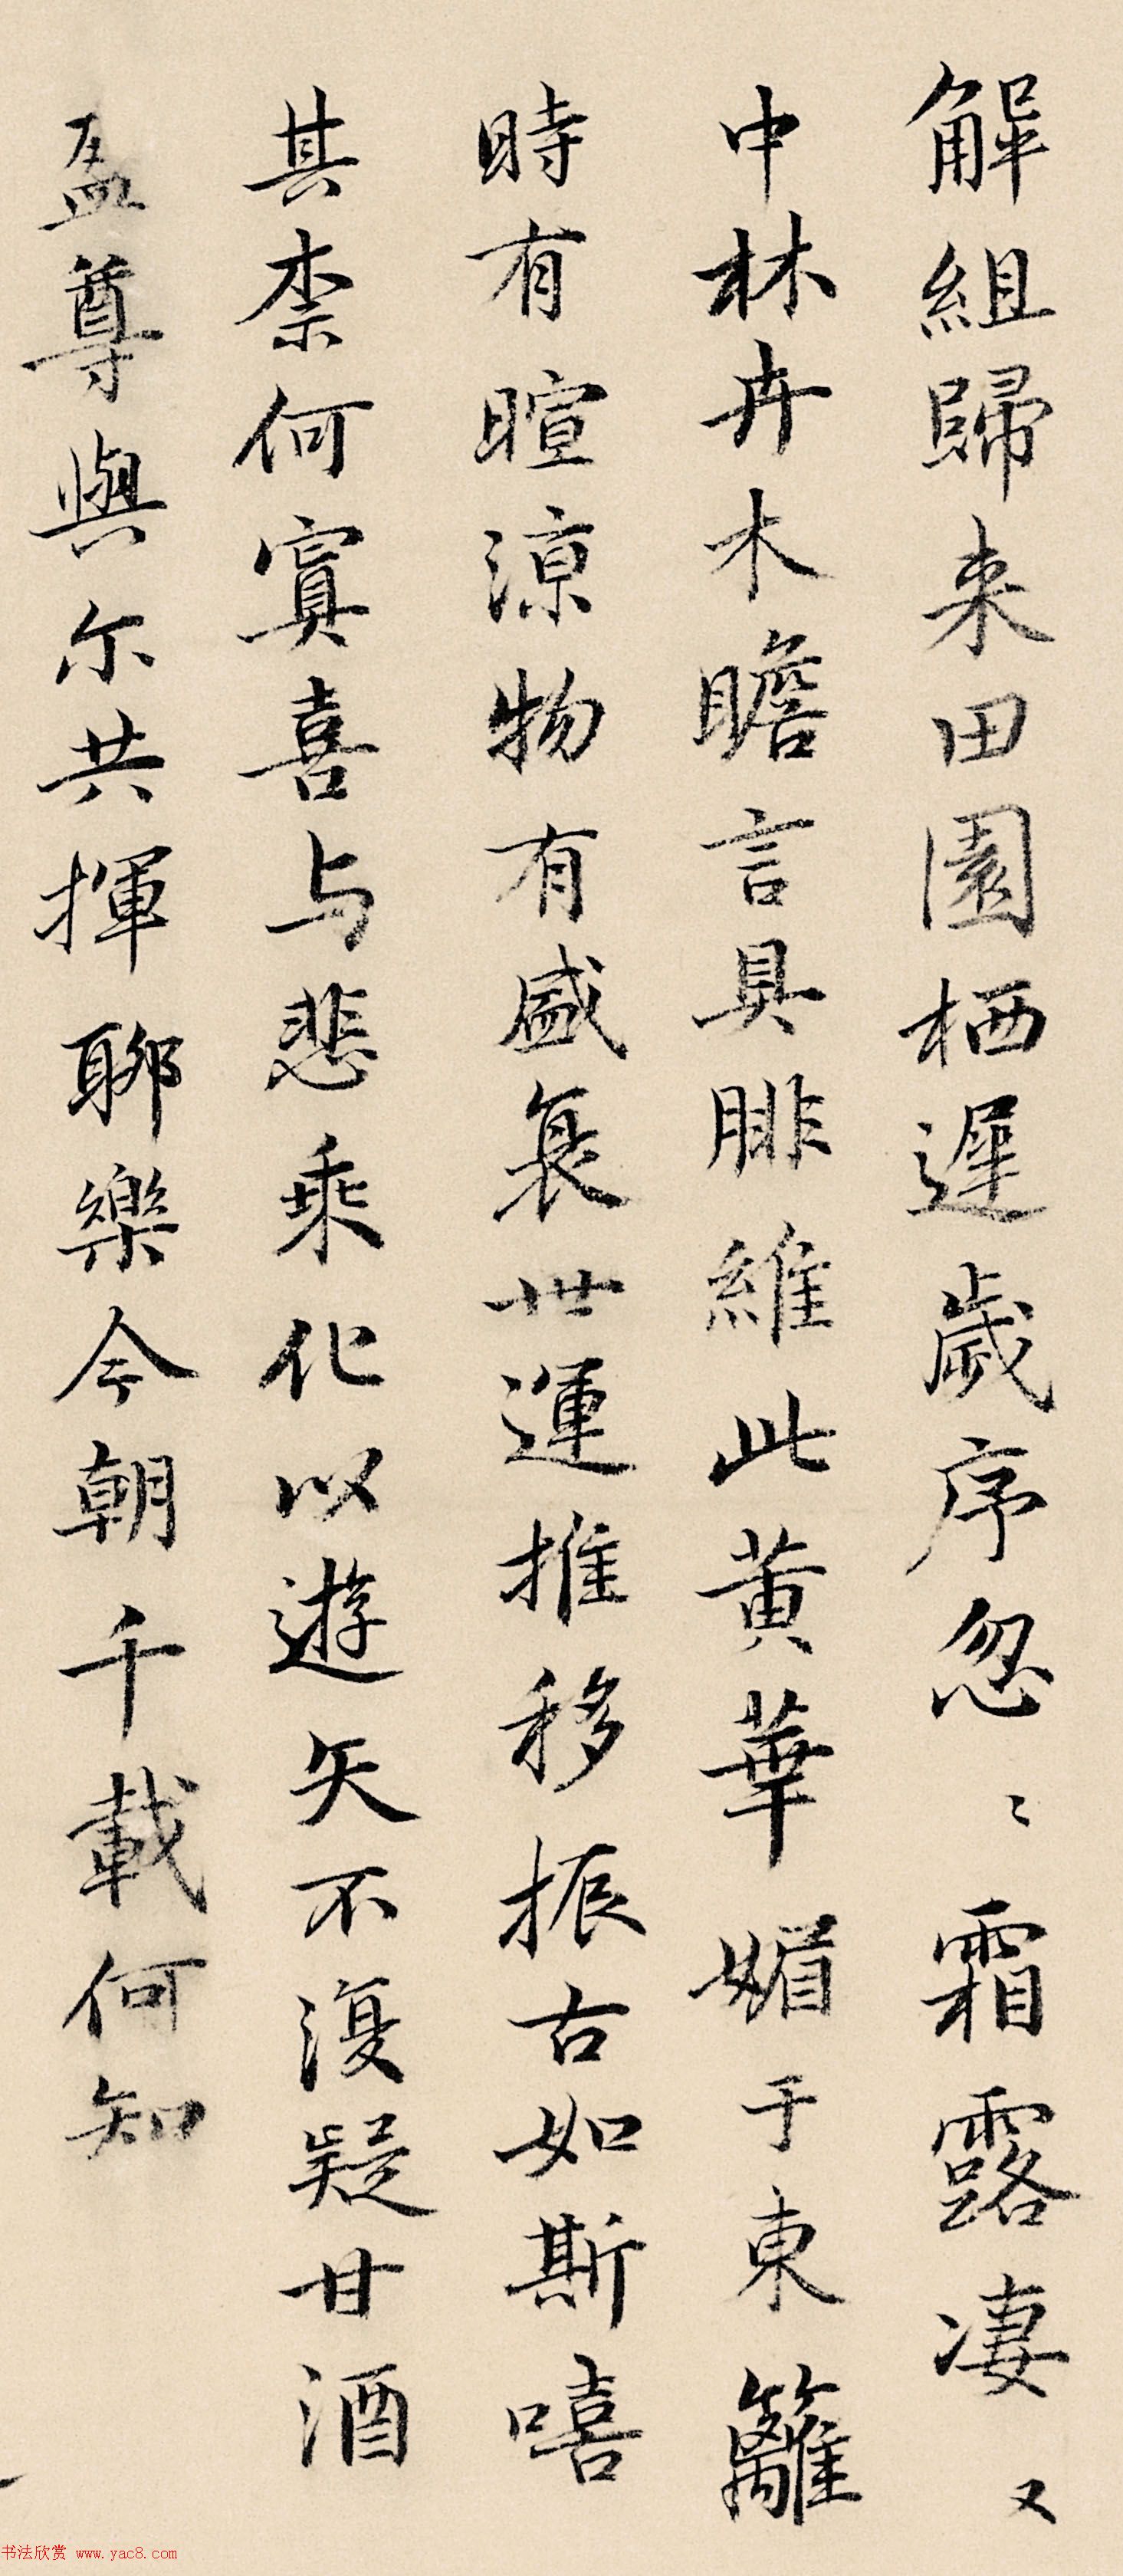 解組歸来田園栖遲歲序忽〻霜露淒又
中林卉木瞻言具腓維此黄華媚于東籬
時有暄涼物有盛衰世運推移振古如斯嘻
其柰何寘喜与悲乘化以遊矢不復疑甘酒
盈尊與尔共揮聊樂今朝千載何知
书法欣赏 www.yac8.com